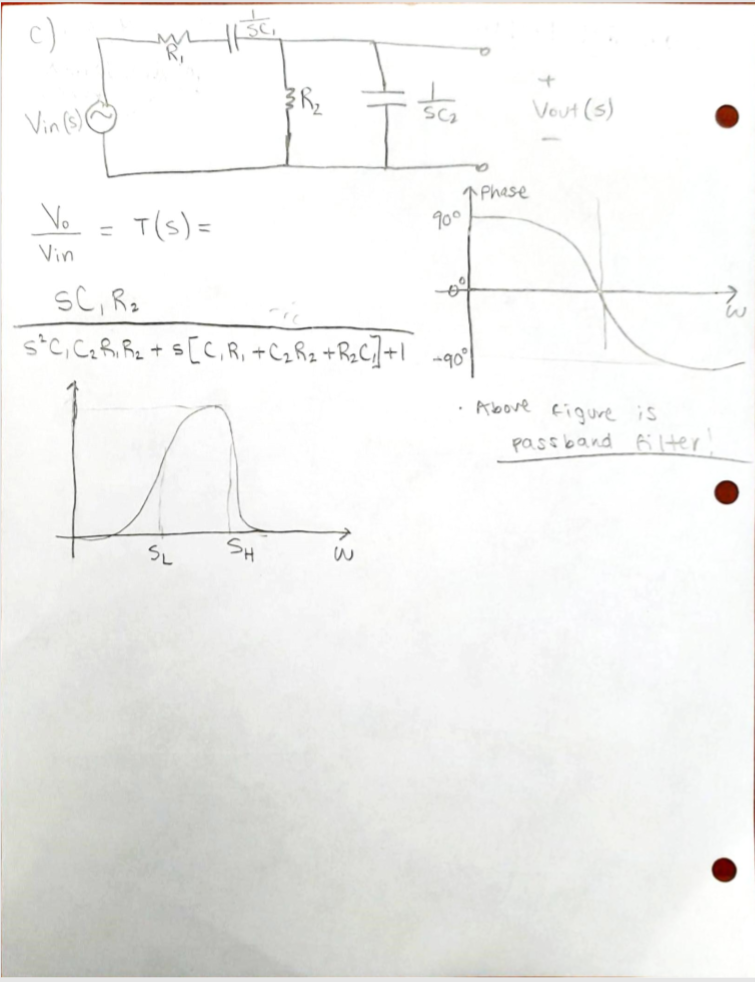 c)
R₁
1/SC₁
Vin(s)
R₂
1/SC₂
+
Vout(s)
−
Vo/Vin = T(s) =
SC₁R₂
s²C₁C₂R₁R₂ + s[C₁R₁ + C₂R₂ + R₂C₁] + 1
Phase
90°
0°
-90°
ω
· Above figure is
passband filter!
SL
SH
ω